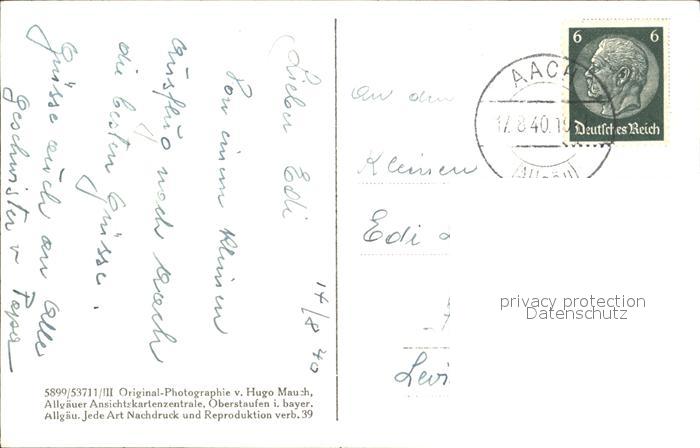 Lieber Edi
Von einem kleinen
Ausflug nach Aach
die besten Grüsse.
Grüsse auch an Alle
Geschwister v Papa
14/8 40
An den
Kleinen
Edi
Levi
AACH
17.8.40.
(Allgäu)
6 6
Deutsches Reich
privacy protection
Datenschutz
5899/53711/III Original-Photographie v. Hugo Mauch,
Allgäuer Ansichtskartenzentrale, Oberstaufen i. bayer.
Allgäu. Jede Art Nachdruck und Reproduktion verb. 39